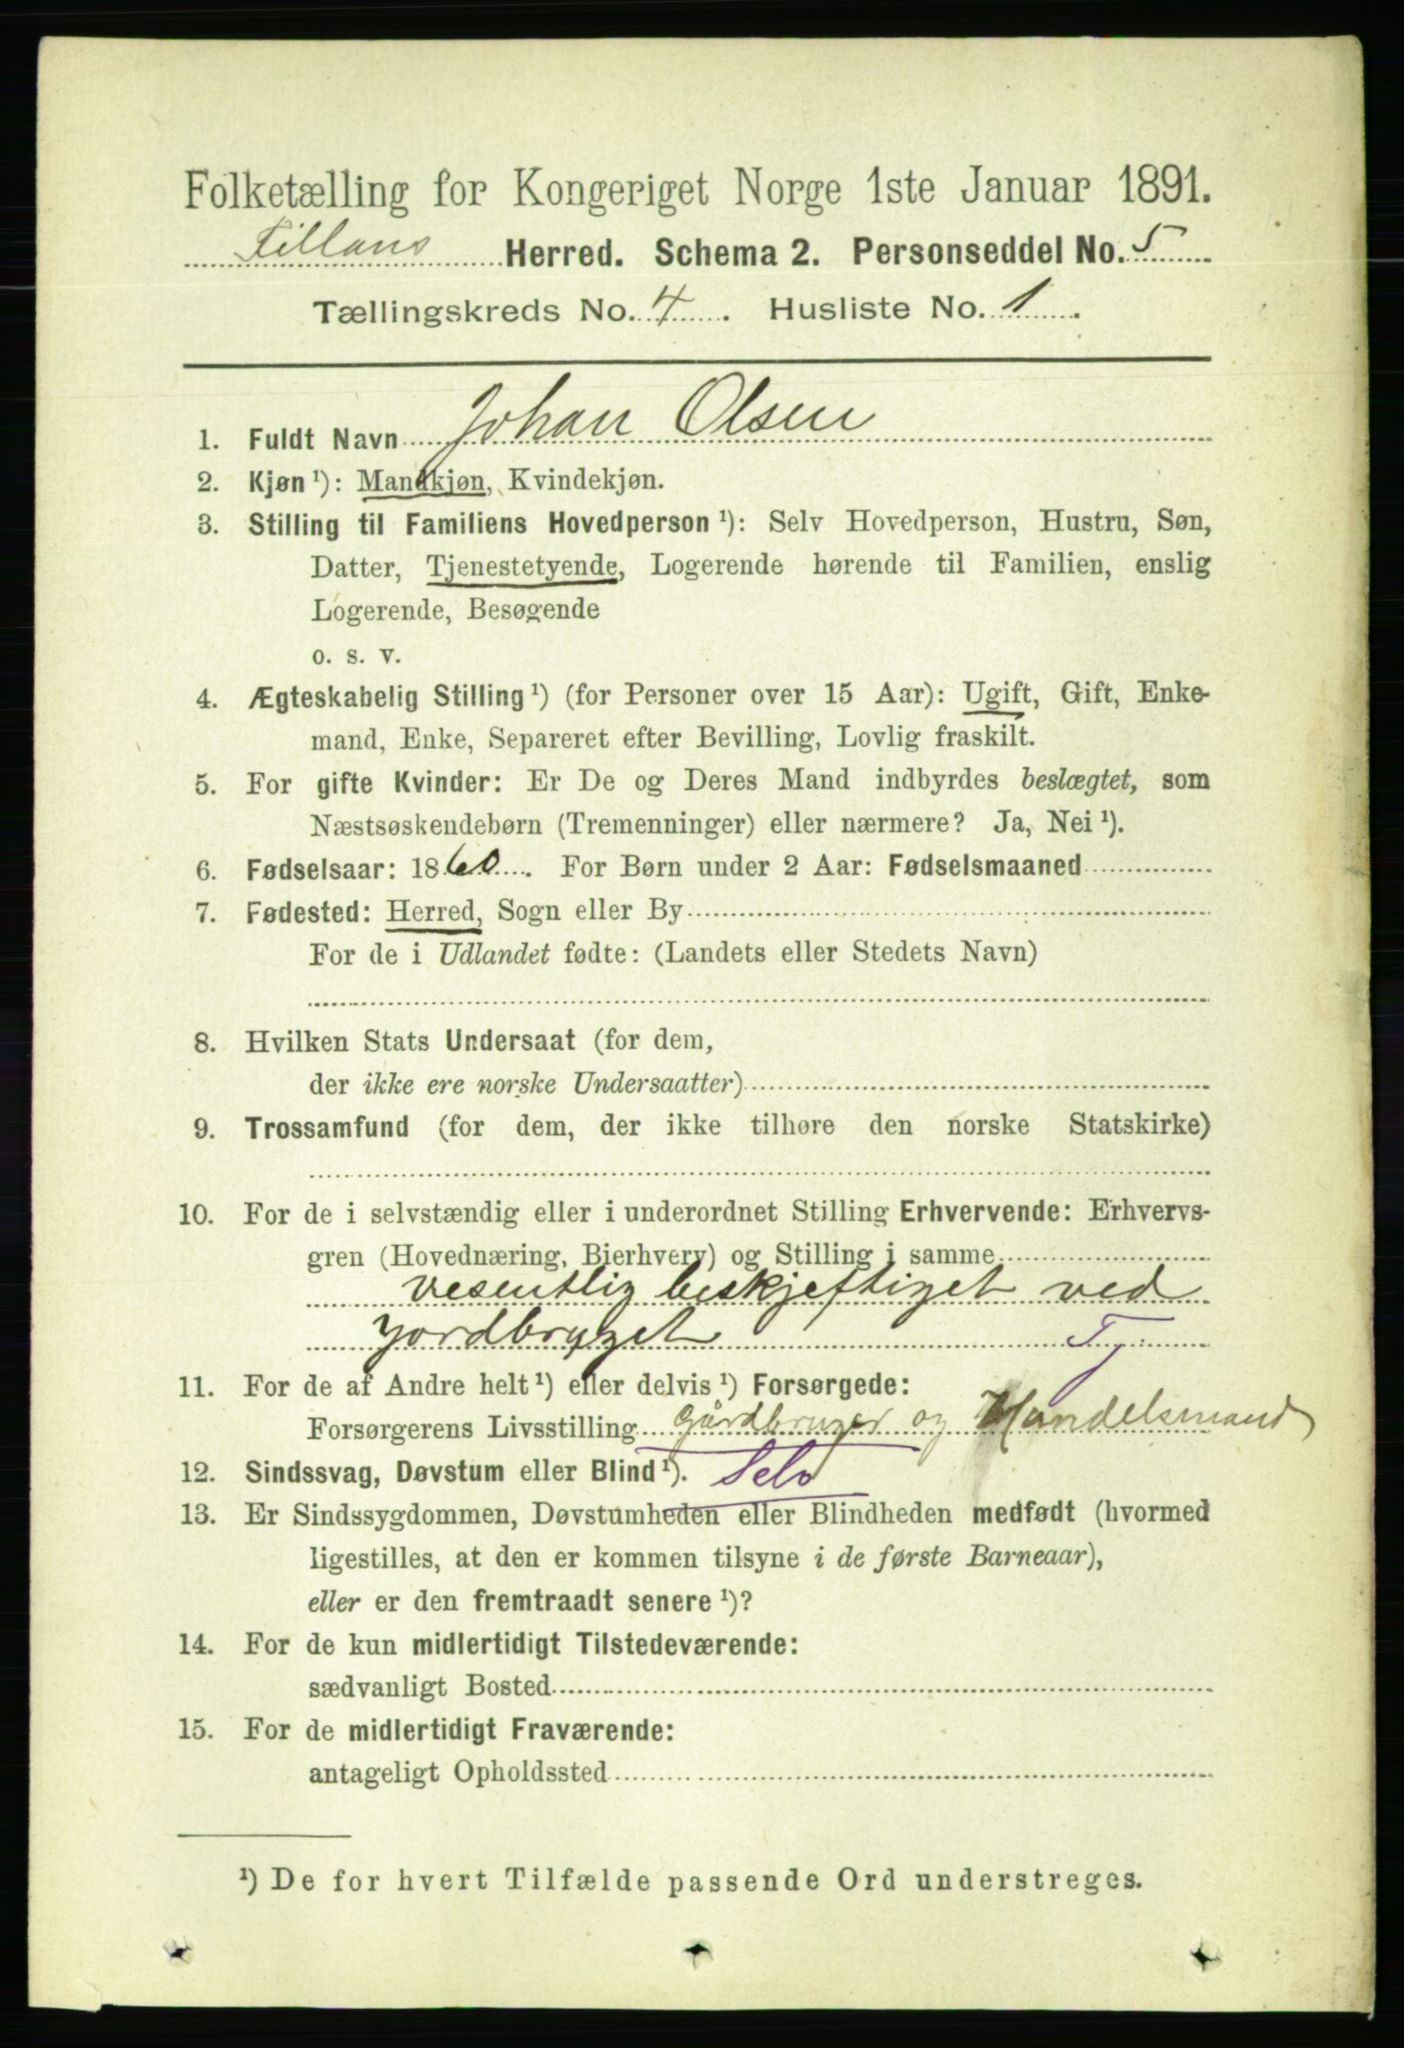 Folketælling for Kongeriget Norge 1ste Januar 1891.
Fillans Herred. Schema 2. Personseddel No. 5
Tællingskreds No. 4. Husliste No. 1.
1. Fuldt Navn Johan Olsen
2. Kjøn ¹): Mandkjøn, Kvindekjøn.
3. Stilling til Familiens Hovedperson ¹): Selv Hovedperson, Hustru, Søn,
Datter, Tjenestetyende, Logerende hørende til Familien, enslig
Logerende, Besøgende
o. s. v.
4. Ægteskabelig Stilling ¹) (for Personer over 15 Aar): Ugift, Gift, Enke-
mand, Enke, Separeret efter Bevilling, Lovlig fraskilt.
5. For gifte Kvinder: Er De og Deres Mand indbyrdes beslægtet, som
Næstsøskendebørn (Tremenninger) eller nærmere? Ja, Nei ¹).
6. Fødselsaar: 1860. For Børn under 2 Aar: Fødselsmaaned
7. Fødested: Herred, Sogn eller By
For de i Udlandet fødte: (Landets eller Stedets Navn)
8. Hvilken Stats Undersaat (for dem,
der ikke ere norske Undersaatter)
9. Trossamfund (for dem, der ikke tilhøre den norske Statskirke)
10. For de i selvstændig eller i underordnet Stilling Erhvervende: Erhvervs-
gren (Hovednæring, Bierhverv) og Stilling i samme
vesentlig beskjeftiget ved
Jordbruget T
11. For de af Andre helt ¹) eller delvis ¹) Forsørgede:
Forsørgerens Livsstilling Gårdbruger og Handelsmand
12. Sindssvag, Døvstum eller Blind ¹). Selv
13. Er Sindssygdommen, Døvstumheden eller Blindheden medfødt (hvormed
ligestilles, at den er kommen tilsyne i de første Barneaar),
eller er den fremtraadt senere ¹)?
14. For de kun midlertidigt Tilstedeværende:
sædvanligt Bosted
15. For de midlertidigt Fraværende:
antageligt Opholdssted
¹) De for hvert Tilfælde passende Ord understreges.